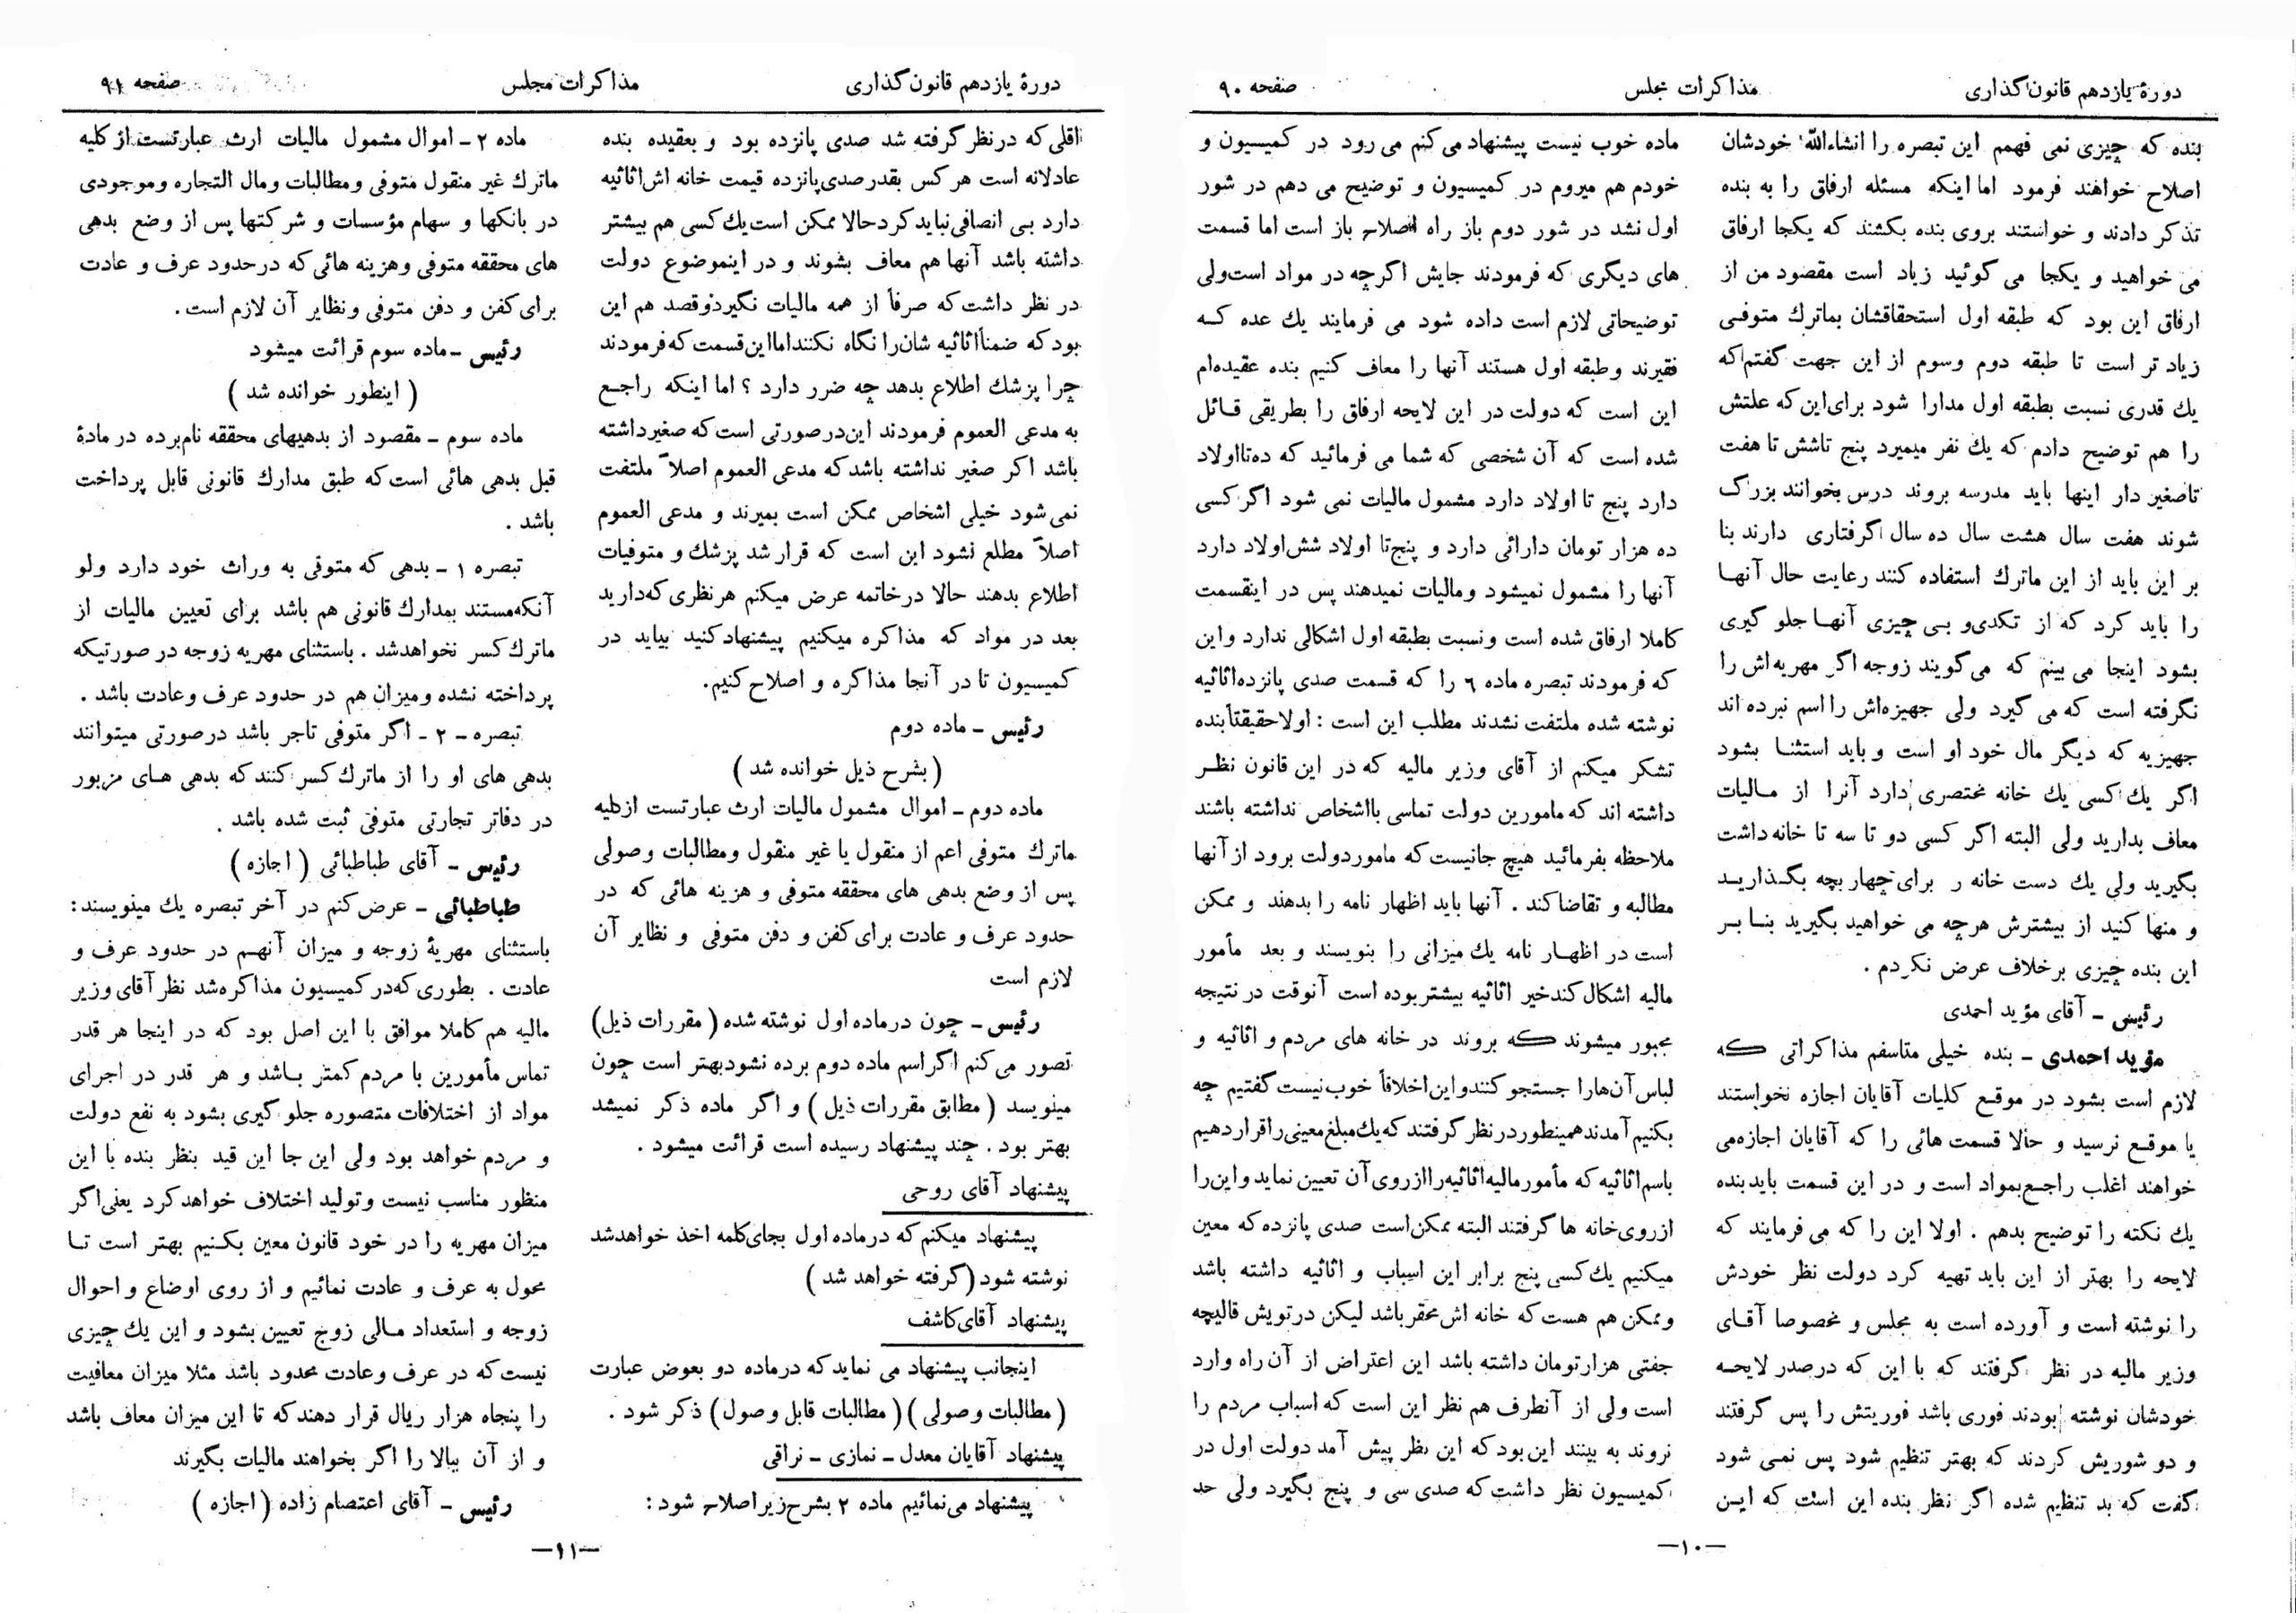 دورهٔ یازدهم قانون‌گذاری
مذاکرات مجلس
صفحه ۹۰
بنده که چیزی نمی فهمم این تبصره را انشاءالله خودشان
اصلاح خواهند فرمود اما اینکه مسئله ارفاق را به بنده
تذکر دادند و خواستند بروی بنده بکشند که یکجا ارفاق
می خواهید و یکجا می گوئید زیاد است مقصود من از
ارفاق این بود که طبقه اول استحقاقشان بماترك متوفی
زیاد تر است تا طبقه دوم وسوم از این جهت گفتم که
یك قدری نسبت بطبقه اول مدارا شود برای این که علتش
را هم توضیح دادم که یك نفر میمیرد پنج تاشش تا هفت
تاصغیر دار اینها باید مدرسه بروند درس بخوانند بزرگ
شوند هفت سال هشت سال ده سال گرفتاری دارند بنا
بر این باید از این ماترك استفاده کنند رعایت حال آنها
را باید کرد که از تکدی و بی چیزی آنها جلو گیری
بشود اینجا می بینم که می گویند زوجه اگر مهریه اش را
نگرفته است که می گیرد ولی جهیزه اش را اسم نبرده اند
جهیزیه که دیگر مال خود او است و باید استثنا بشود
اگر یك کسی یك خانه مختصری دارد آنرا از مالیات
معاف بدارید ولی البته اگر کسی دو تا سه تا خانه داشت
بگیرید ولی یك دست خانه ر برای چهار بچه بگذارید
و منها کنید از بیشترش هرچه می خواهید بگیرید بنا بر
این بنده چیزی برخلاف عرض نکردم .
رئیس – آقای مؤید احمدی
مؤید احمدی – بنده خیلی متاسفم مذاکراتی که
لازم است بشود در موقع کلیات آقایان اجازه نخواستند
یا موقع نرسید و حالا قسمت هائی را که آقایان اجازه می
خواهند اغلب راجع بمواد است و در این قسمت باید بنده
یك نکته را توضیح بدهم . اولا این را که می فرمایند که
لایحه را بهتر از این باید تهیه کرد دولت نظر خودش
را نوشته است و آورده است به مجلس و مخصوصا آقای
وزیر مالیه در نظر گرفتند که با این که درصدر لایحه
خودشان نوشته بودند فوری باشد فوریتش را پس گرفتند
و دو شوریش کردند که بهتر تنظیم شود پس نمی شود
گفت که بد تنظیم شده اگر نظر بنده این است که این
ماده خوب نیست پیشنهاد می کنم می رود در کمیسیون و
خودم هم میروم در کمیسیون و توضیح می دهم در شور
اول نشد در شور دوم باز راه اصلاح باز است اما قسمت
های دیگری که فرمودند جایش اگرچه در مواد است ولی
توضیحاتی لازم است داده شود می فرمایند یك عده که
فقیرند و طبقه اول هستند آنها را معاف کنیم بنده عقیده ام
این است که دولت در این لایحه ارفاق را بطریقی قائل
شده است که آن شخصی که شما می فرمائید که ده تا اولاد
دارد پنج تا اولاد دارد مشمول مالیات نمی شود اگر کسی
ده هزار تومان دارائی دارد و پنج تا اولاد شش اولاد دارد
آنها را مشمول نمیشود ومالیات نمیدهند پس در اینقسمت
کاملا ارفاق شده است و نسبت بطبقه اول اشکالی ندارد و این
که فرمودند تبصره ماده ۶ را که قسمت صدی پانزده اثاثیه
نوشته شده ملتفت نشدند مطلب این است : اولا حقیقتاً بنده
تشکر میکنم از آقای وزیر مالیه که در این قانون نظر
داشته اند که مامورین دولت تماسی بااشخاص نداشته باشند
ملاحظه بفرمائید هیچ جانیست که ماموردولت برود از آنها
مطالبه و تقاضا کند . آنها باید اظهار نامه را بدهند و ممکن
است در اظهار نامه یك میزانی را بنویسند و بعد مأمور
مالیه اشکال کند خیر اثاثیه بیشتر بوده است آنوقت در نتیجه
مجبور میشوند که بروند در خانه های مردم و اثاثیه و
لباس آن هارا جستجو کنند و این اخلاقاً خوب نیست گفتیم چه
بکنیم آمدند همینطور در نظر گرفتند که یك مبلغ معینی را قرار دهیم
باسم اثاثیه که مأمور مالیه اثاثیه را از روی آن تعیین نماید و این را
از روی خانه ها گرفتند البته ممکن است صدی پانزده که معین
میکنیم یك کسی پنج برابر این اسباب و اثاثیه داشته باشد
وممکن هم هست که خانه اش محقر باشد لیکن در تویش قالیچه
جفتی هزار تومان داشته باشد این اعتراض از آن راه وارد
است ولی از آنطرف هم نظر این است که اسباب مردم را
نروند به بینند این بود که این نظر پیش آمد دولت اول در
کمیسیون نظر داشت که صدی سی و پنج بگیرد ولی حد
—۱۰—
دورهٔ یازدهم قانون‌گذاری
مذاکرات مجلس
صفحه ۹۱
اقلی که در نظر گرفته شد صدی پانزده بود و بعقیده بنده
عادلانه است هر کس بقدر صدی پانزده قیمت خانه اش اثاثیه
دارد بی انصافی نباید کرد حالا ممکن است یك کسی هم بیشتر
داشته باشد آنها هم معاف بشوند و در اینموضوع دولت
در نظر داشت که صرفاً از همه مالیات نگیرد و قصد هم این
بود که ضمناً اثاثیه شان را نگاه نکنند اما این قسمت که فرمودند
چرا پزشك اطلاع بدهد چه ضرر دارد ؟ اما اینکه راجع
به مدعی العموم فرمودند این در صورتی است که صغیر داشته
باشد اگر صغیر نداشته باشد که مدعی العموم اصلاً ملتفت
نمی شود خیلی اشخاص ممکن است بمیرند و مدعی العموم
اصلاً مطلع نشود این است که قرار شد پزشك و متوفیات
اطلاع بدهند حالا در خاتمه عرض میکنم هر نظری که دارید
بعد در مواد که مذاکره میکنیم پیشنهاد کنید بیاید در
کمیسیون تا در آنجا مذاکره و اصلاح کنیم.
رئیس – ماده دوم
( بشرح ذیل خوانده شد )
ماده دوم – اموال مشمول مالیات ارث عبارتست از کلیه
ماترك متوفی اعم از منقول یا غیر منقول ومطالبات وصولی
پس از وضع بدهی های محققه متوفی و هزینه هائی که در
حدود عرف و عادت برای کفن و دفن متوفی و نظایر آن
لازم است
رئیس – چون در ماده اول نوشته شده ( مقررات ذیل)
تصور می کنم اگر اسم ماده دوم برده نشود بهتر است چون
مینویسد ( مطابق مقررات ذیل ) و اگر ماده ذکر نمیشد
بهتر بود . چند پیشنهاد رسیده است قرائت میشود .
پیشنهاد آقای روحی
پیشنهاد میکنم که در ماده اول بجای کلمه اخذ خواهد شد
نوشته شود (گرفته خواهد شد )
پیشنهاد آقای کاشف
اینجانب پیشنهاد می نماید که در ماده دو بعوض عبارت
( مطالبات وصولی ) ( مطالبات قابل وصول) ذکر شود .
پیشنهاد آقایان معدل – نمازی – نراقی
پیشنهاد می نمائیم ماده ۲ بشرح زیر اصلاح شود :
ماده ۲ – اموال مشمول مالیات ارث عبارتست از کلیه
ماترك غیر منقول متوفی ومطالبات ومال التجاره وموجودی
در بانکها و سهام مؤسسات و شرکتها پس از وضع بدهی
های محققه متوفی وهزینه هائی که در حدود عرف و عادت
برای کفن و دفن متوفی ونظایر آن لازم است .
رئیس – ماده سوم قرائت میشود
( اینطور خوانده شد )
ماده سوم – مقصود از بدهیهای محققه نام برده در مادهٔ
قبل بدهی هائی است که طبق مدارك قانونی قابل پرداخت
باشد .
تبصره ۱ – بدهی که متوفی به وراث خود دارد ولو
آنکه مستند بمدارك قانونی هم باشد برای تعیین مالیات از
ماترك کسر نخواهد شد . باستثنای مهریه زوجه در صورتیکه
پرداخته نشده ومیزان هم در حدود عرف وعادت باشد .
تبصره – ۲ – اگر متوفی تاجر باشد در صورتی میتوانند
بدهی های او را از ماترك کسر کنند که بدهی های مزبور
در دفاتر تجارتی متوفی ثبت شده باشد .
رئیس – آقای طباطبائی ( اجازه )
طباطبائی – عرض کنم در آخر تبصره یك مینویسند :
باستثنای مهریهٔ زوجه و میزان آنهم در حدود عرف و
عادت . بطوری که در کمیسیون مذاکره شد نظر آقای وزیر
مالیه هم کاملا موافق با این اصل بود که در اینجا هر قدر
تماس مأمورین با مردم کمتر باشد و هر قدر در اجرای
مواد از اختلافات متصوره جلو گیری بشود به نفع دولت
و مردم خواهد بود ولی این جا این قید بنظر بنده با این
منظور مناسب نیست و تولید اختلاف خواهد کرد یعنی اگر
میزان مهریه را در خود قانون معین بکنیم بهتر است تا
محول به عرف و عادت نمائیم و از روی اوضاع و احوال
زوجه و استعداد مالی زوج تعیین بشود و این یك چیزی
نیست که در عرف وعادت محدود باشد مثلا میزان معافیت
را پنجاه هزار ریال قرار دهند که تا این میزان معاف باشد
و از آن ببالا را اگر بخواهند مالیات بگیرند
رئیس – آقای اعتصام زاده ( اجازه )
—۱۱—